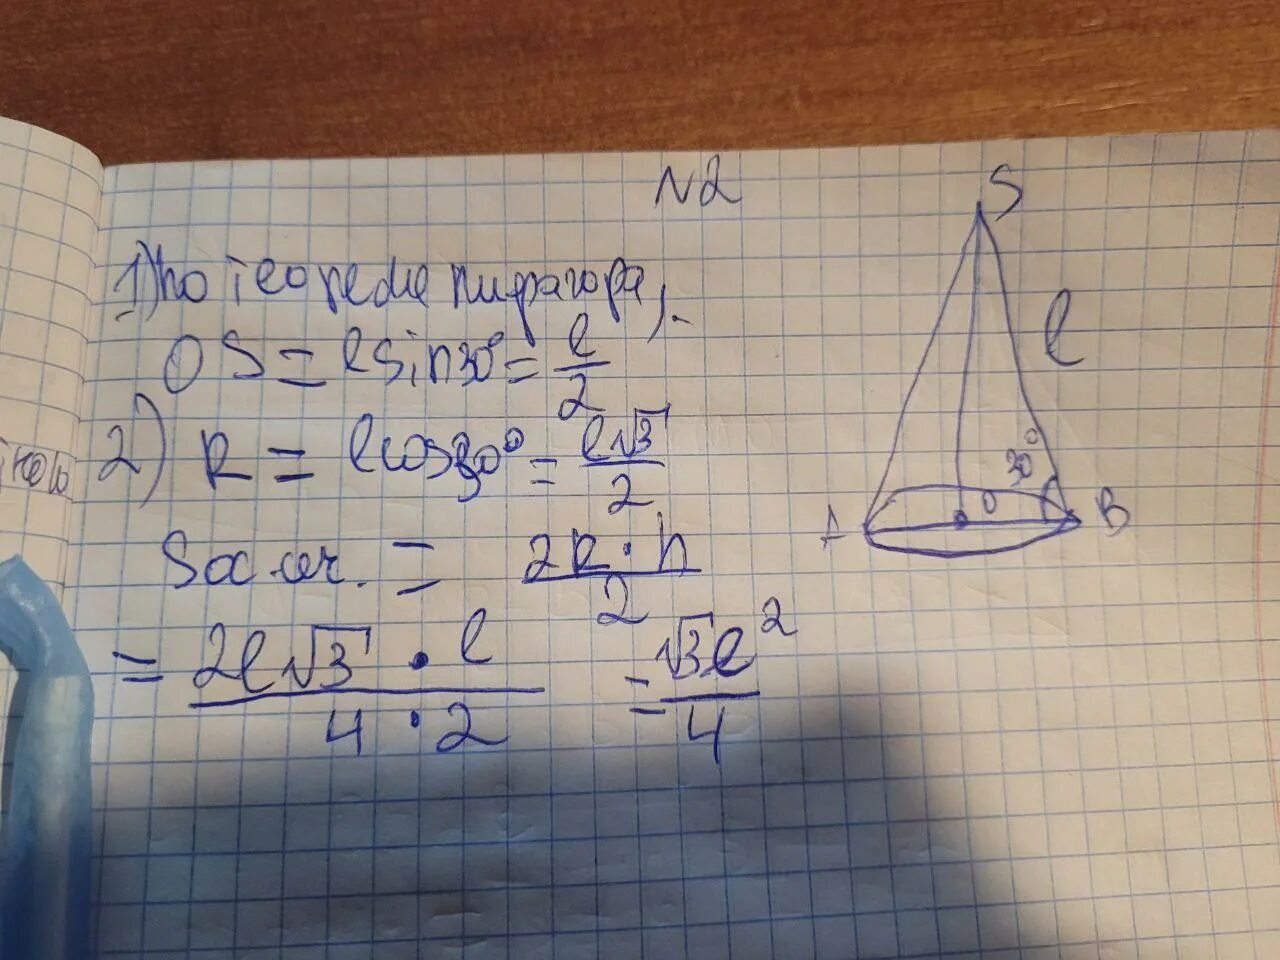 N2
1) по теореме пифагора,
OS = l sin 30° = l/2
2) R = l cos 30° = l√3/2
Sос. сеч. = 2R · h / 2
= 2l√3 · l / 4 · 2 = √3l² / 4
S
l
30°
O
A
B